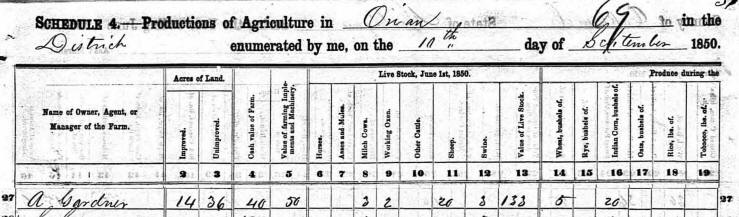 SCHEDULE 4.—Productions of Agriculture in Orian 69 in the
District enumerated by me, on the 10th day of September 1850.
Acres of Land. Live Stock, June 1st, 1850. Produce during the
Name of Owner, Agent, or Manager of the Farm. Improved. Unimproved. Cash value of Farm. Value of farming Implements and Machinery. Horses. Asses and Mules. Milch Cows. Working Oxen. Other Cattle. Sheep. Swine. Value of Live Stock. Wheat, bushels of. Rye, bushels of. Indian Corn, bushels of. Oats, bushels of. Rice, lbs. of. Tobacco, lbs. of.
2 3 4 5 6 7 8 9 10 11 12 13 14 15 16 17 18 19
27 A, Gardner 14 36 40 50 3 2 20 3 133 5 20 27